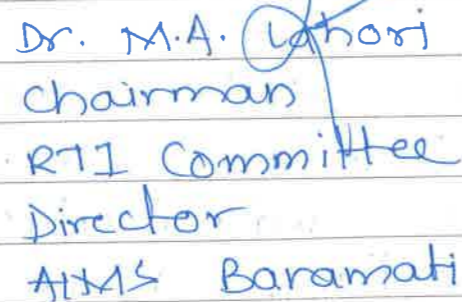 Dr. M.A. Lahori
Chairman
RTI Committee
Director
AIMS Baramati